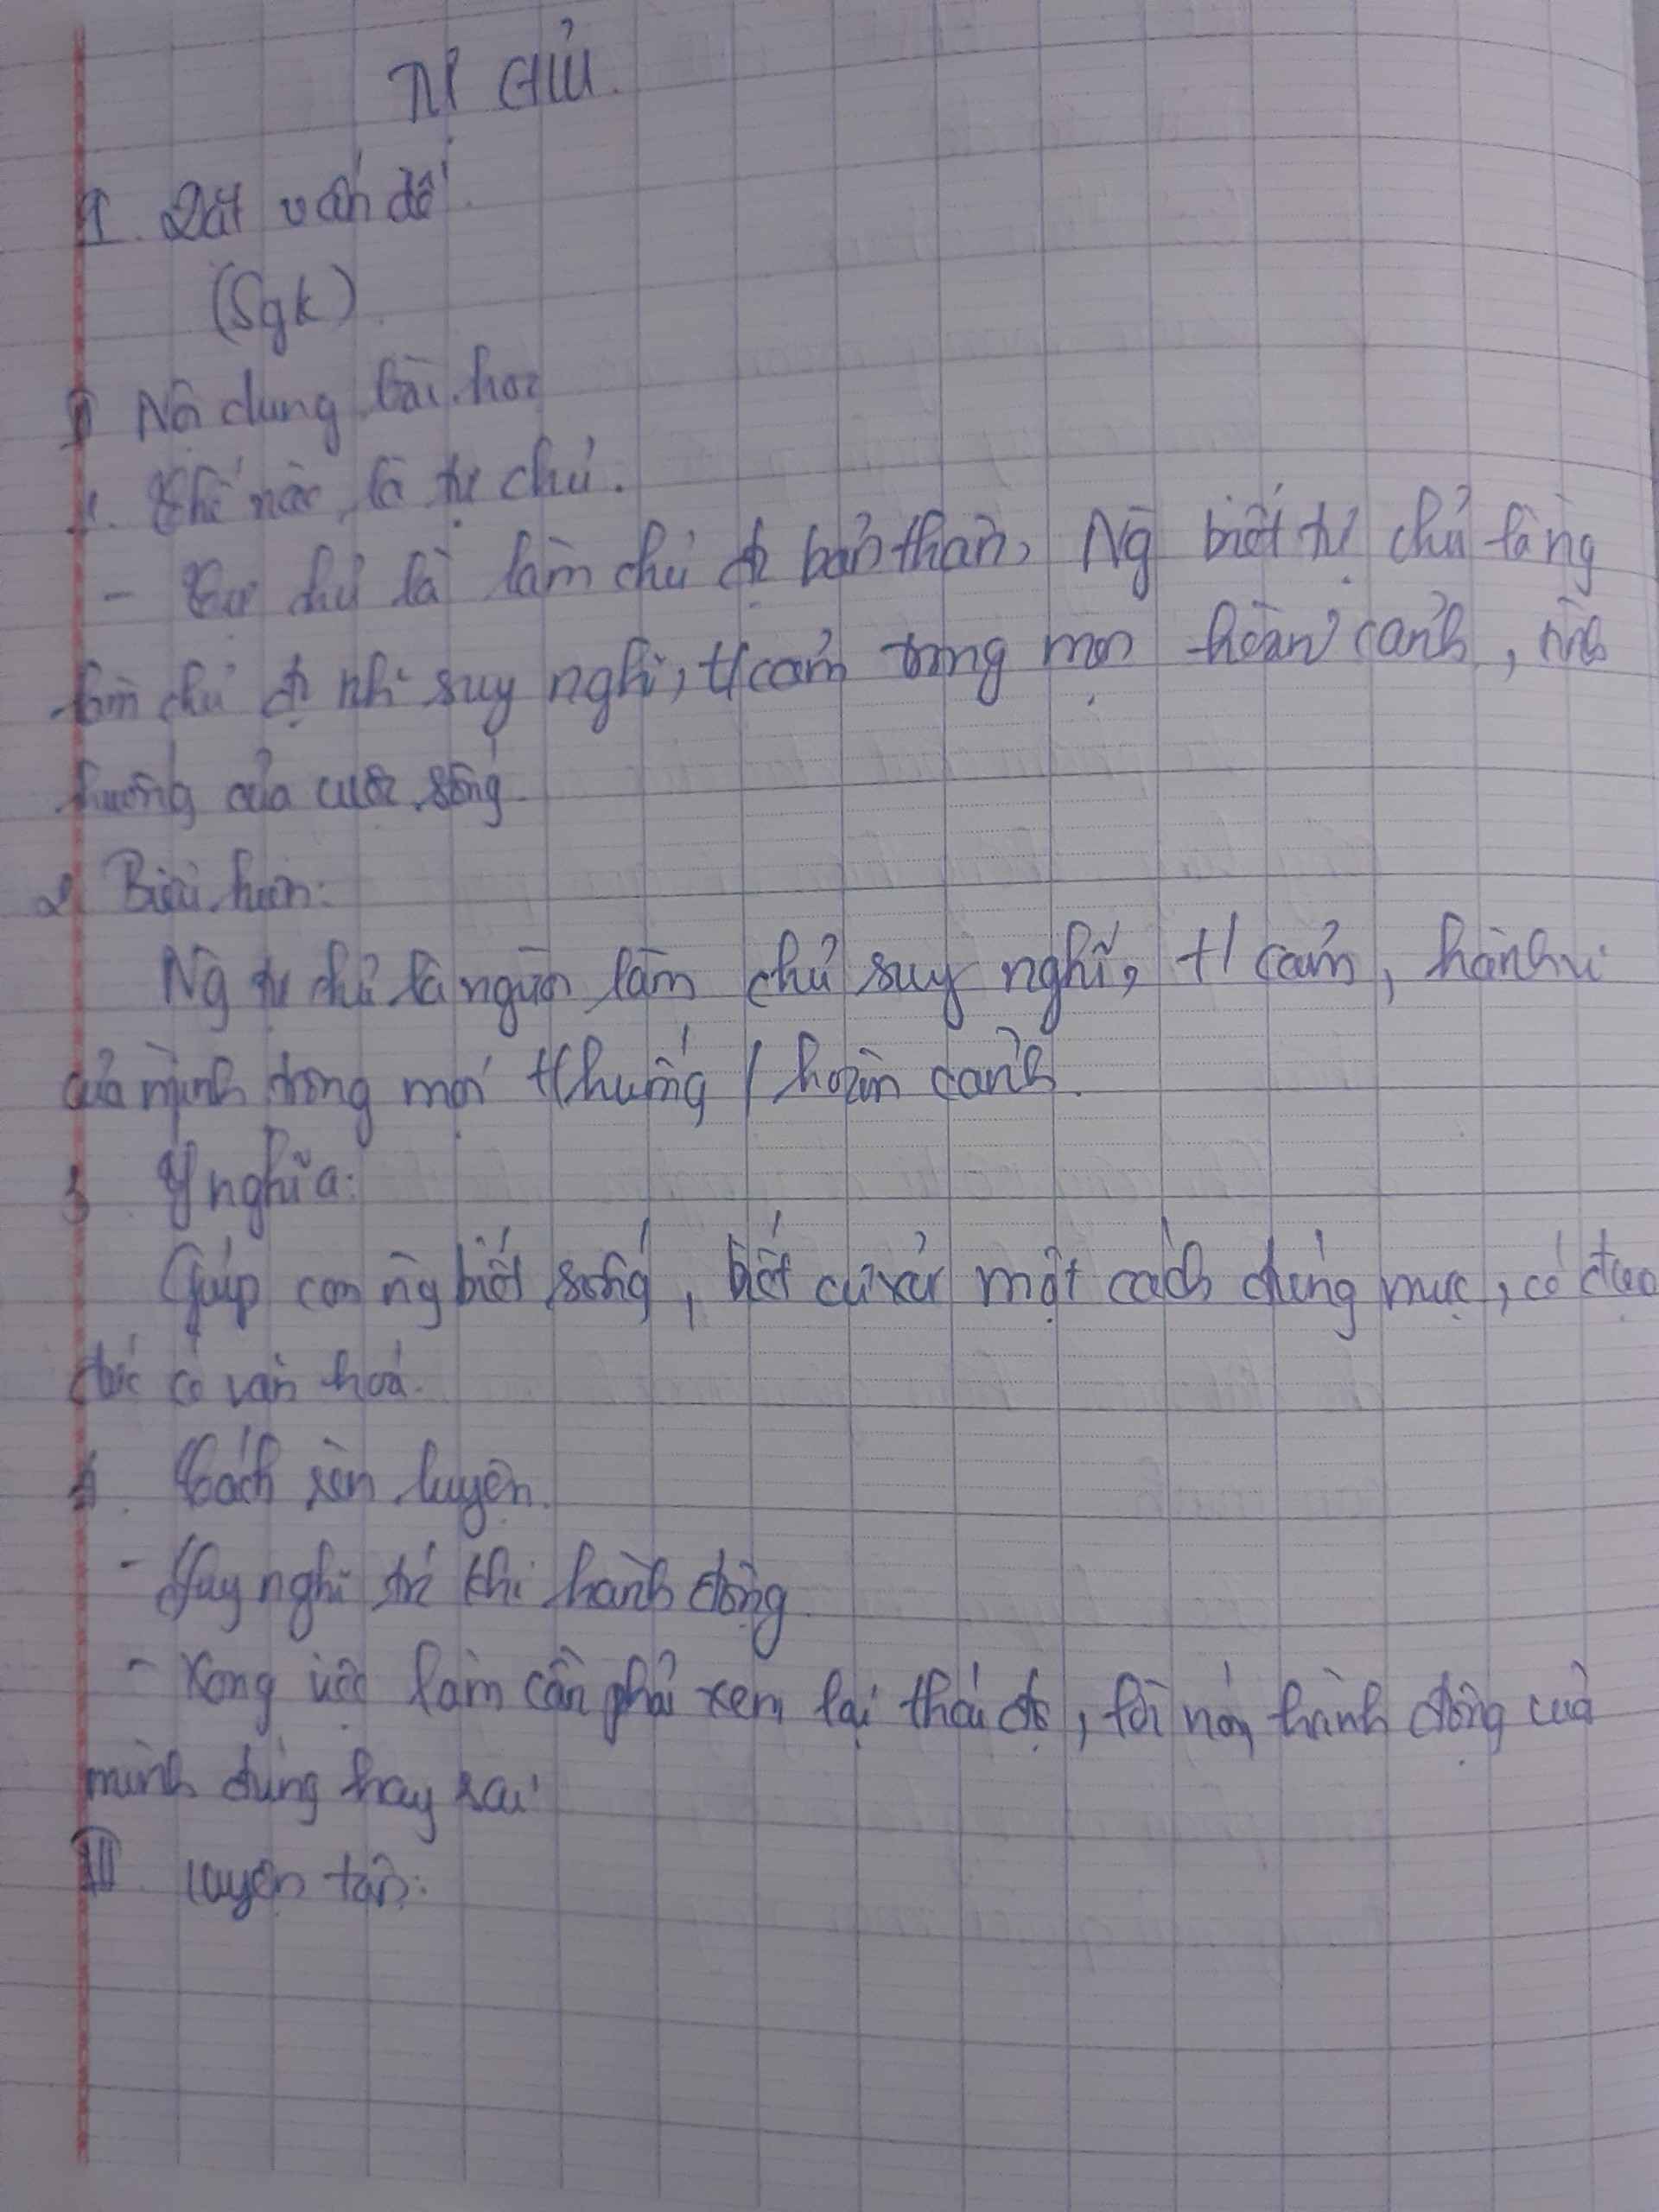 TỰ CHỦ.
I. Đặt vấn đề
(Sgk)
II Nội dung bài học
1. Thế nào là tự chủ.
- Tự chủ là làm chủ đc bản thân, Ng biết tự chủ là ng
làm chủ đc nh~ suy nghĩ, t/cảm trong mọi hoàn cảnh, tình
huống của cuộc sống
2 Biểu hiện:
Ng tự chủ là người làm chủ suy nghĩ, t/cảm, hành vi
của mình trong mọi t/huống / hoàn cảnh.
3 Ý nghĩa:
Giúp con ng biết sống, biết cư xử một cách đúng mực, có đạo
đức có văn hoá.
4. Cách rèn luyện.
- Suy nghĩ trc khi hành động
- Xong việc làm cần phải xem lại thái độ, lời nói, hành động của
mình đúng hay sai
III. Luyện tập: